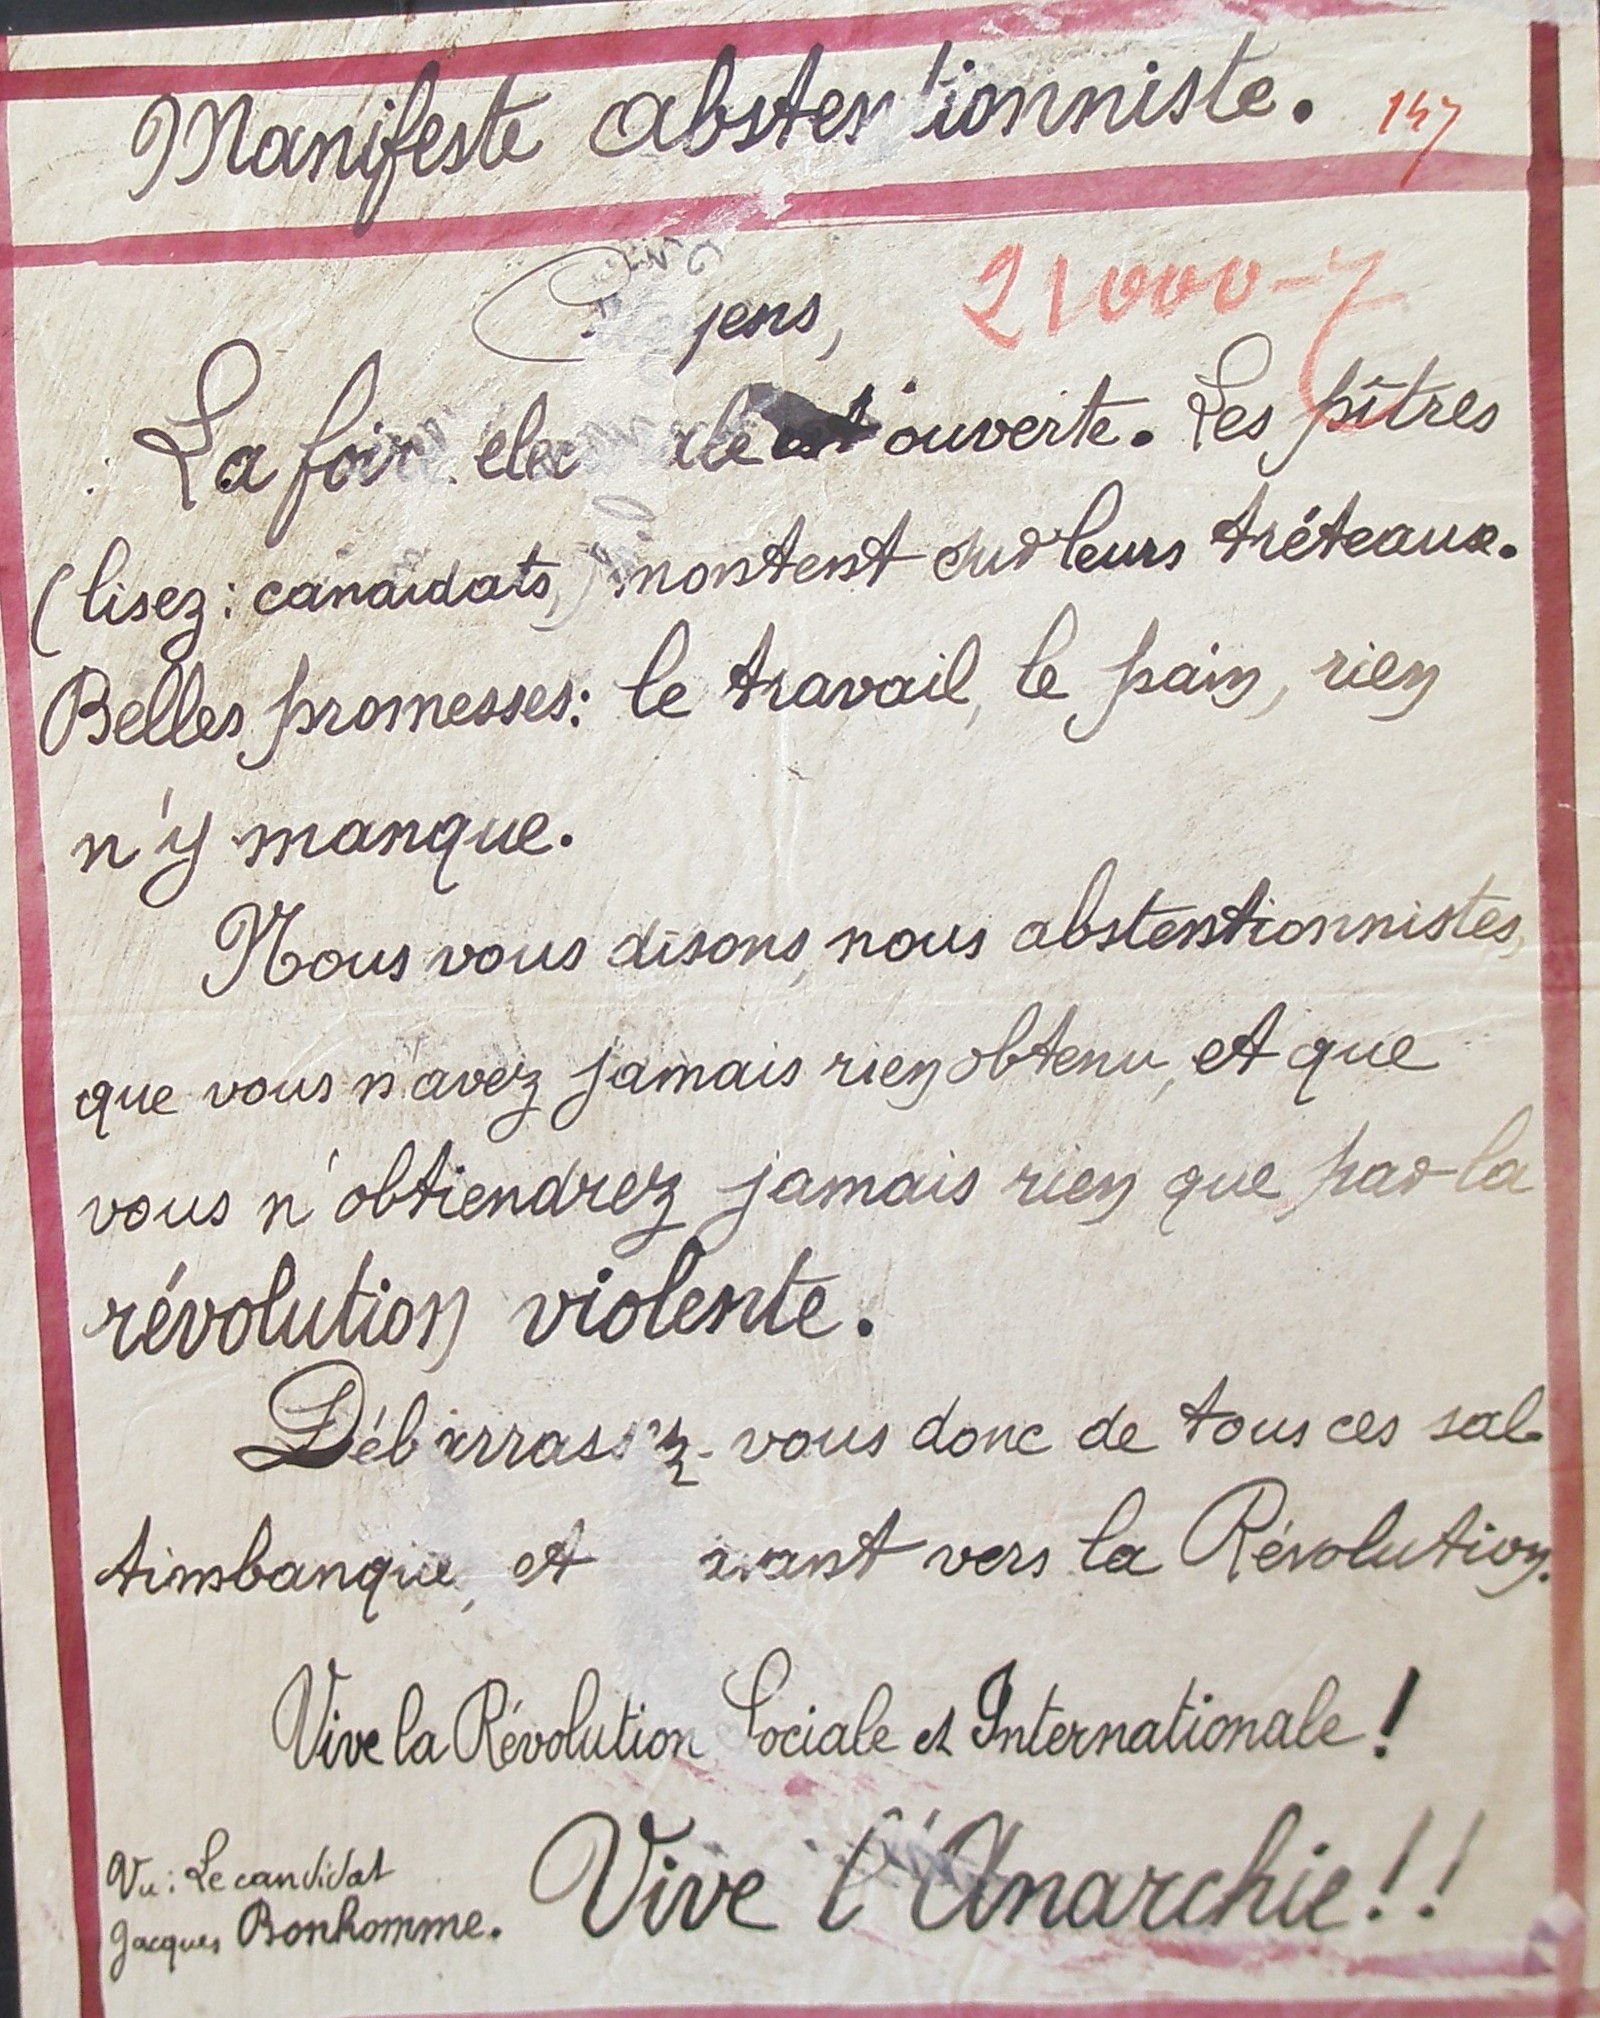 Manifeste abstentionniste. 147
Citoyens, 21000-7
La foire electorale est ouverte. Les pîtres
(lisez: candidats,) montent sur leurs tréteaux.
Belles promesses: le travail, le pain, rien
n'y manque.
Nous vous disons, nous abstentionnistes,
que vous n'avez jamais rien obtenu, et que
vous n'obtiendrez jamais rien que par la
révolution violente.
Débarrassez-vous donc de tous ces sal-
timbanque, et avant vers la Révolution.
Vive la Révolution Sociale et Internationale!
Vu: Le candidat
Jacques Bonhomme.
Vive l'Anarchie!!